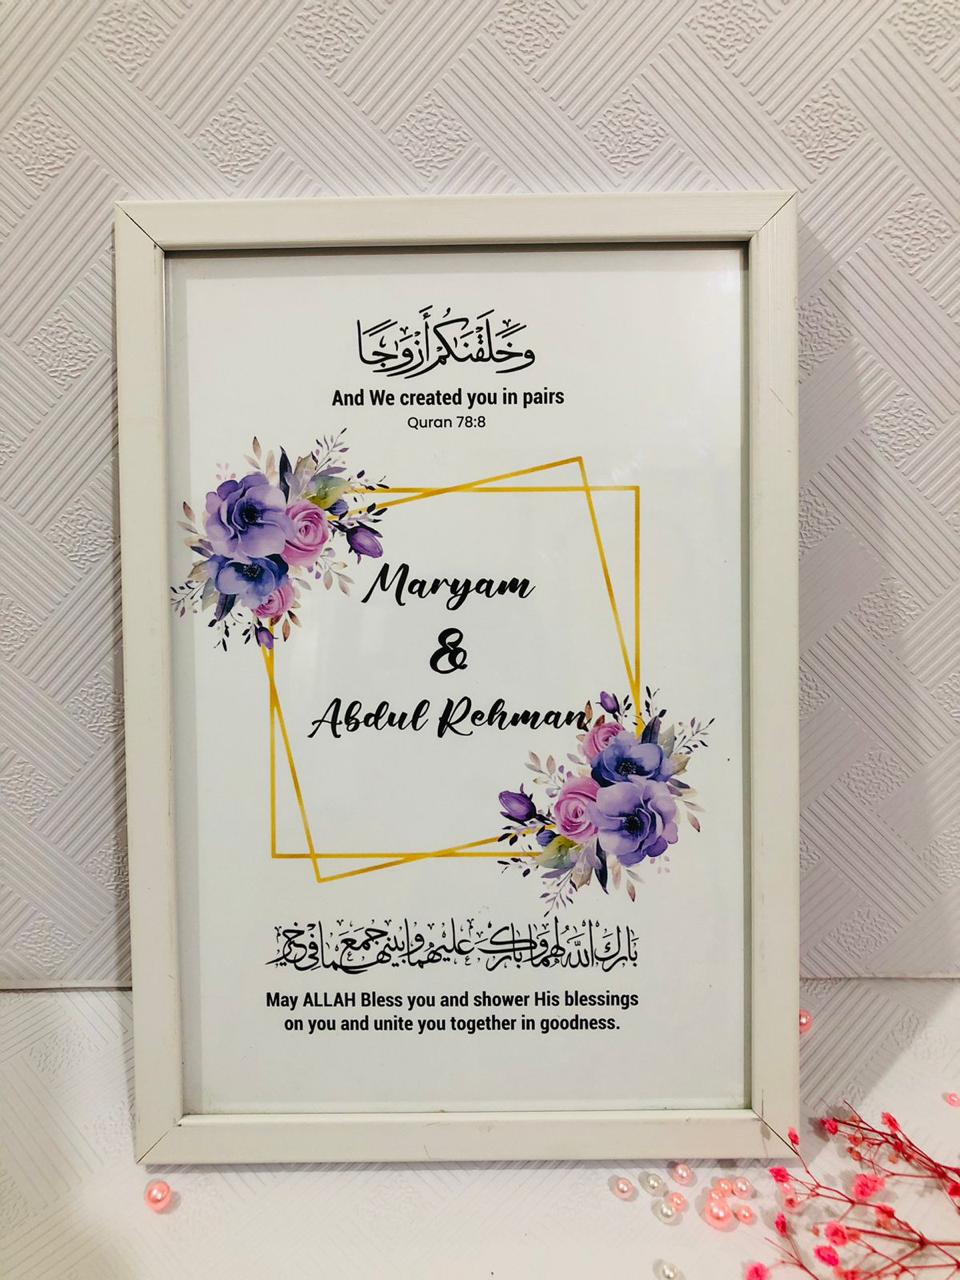 وَخَلَقْنَٰكُمْ أَزْوَٰجًا
And We created you in pairs
Quran 78:8
Maryam
&
Abdul Rehman
بارك الله لهما وبارك عليهما وجمع بينهما في خير
May ALLAH Bless you and shower His blessings
on you and unite you together in goodness.